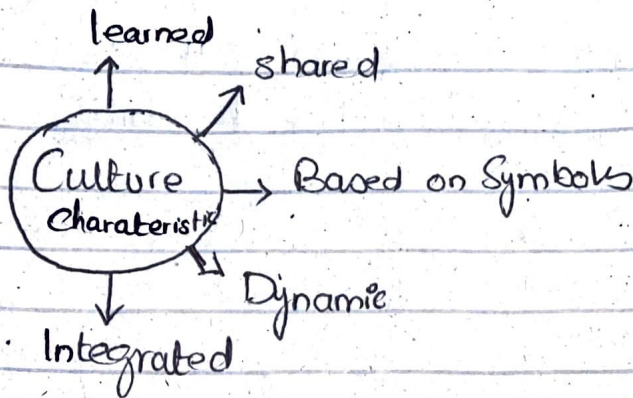 learned
shared
Culture
Charateristic
Based on Symbols
Dynamic
Integrated